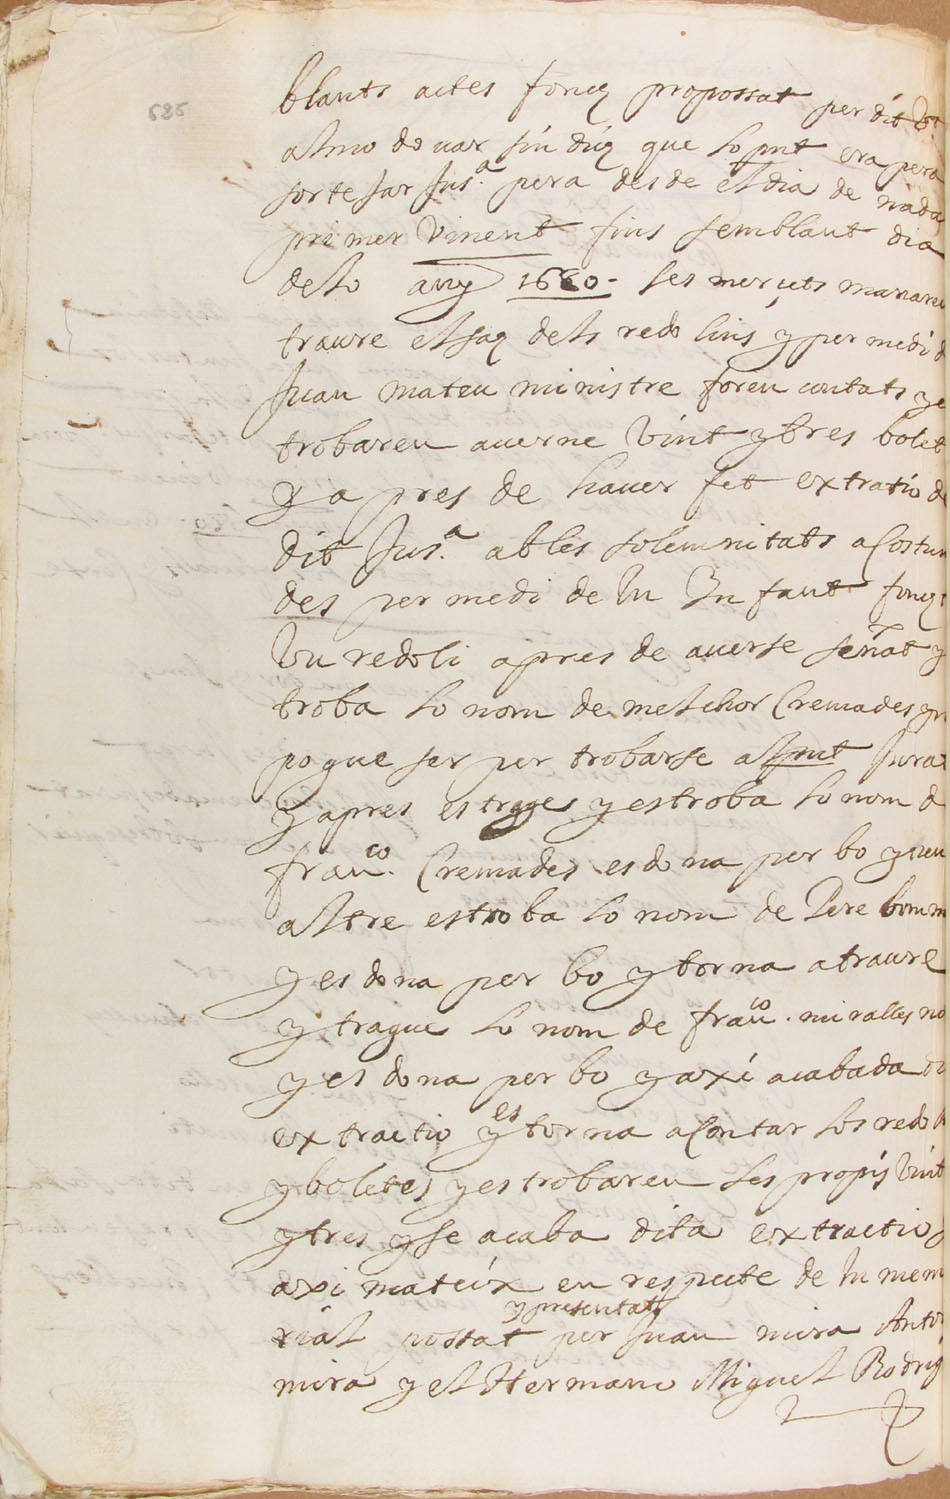 585
blants actes fonch propossat per dit
almo de nar sindiq que lo pnt era pera
sortejar Jusª. pera desde el dia de nada
primer vinent fins semblant dia
de lo any 1680 - ses merçets manaren
traure el saq dels redolins y per medi d
Juan mateu ministre foren contats y e
trobaren averne vint y tres bolet
y a pres de haver fet extratio de
dit Jusª. ab les solemnitats acostum
des per medi de hu Infant fonch
hu redoli apres de averse señat y
troba lo nom de melchor Cremades y n
pogue ser per trobarse al pnt Jurat
y apres es trague y es troba lo nom d
franco. Cremades es dona per bo y en
altre es troba lo nom de Pere bom
y es dona per bo y torna a traure
y trague lo nom de franco. miralles no
y es dona per bo y axi acabada di
extractio y es torna a contar los redol
y boletes y es trobaren les propis vint
y tres y se acaba dita extractio y
axi mateix en respecte de hu mem
rial possat y presentat per Juan mira Anto
mira y el Hermano Miguel Rodrig